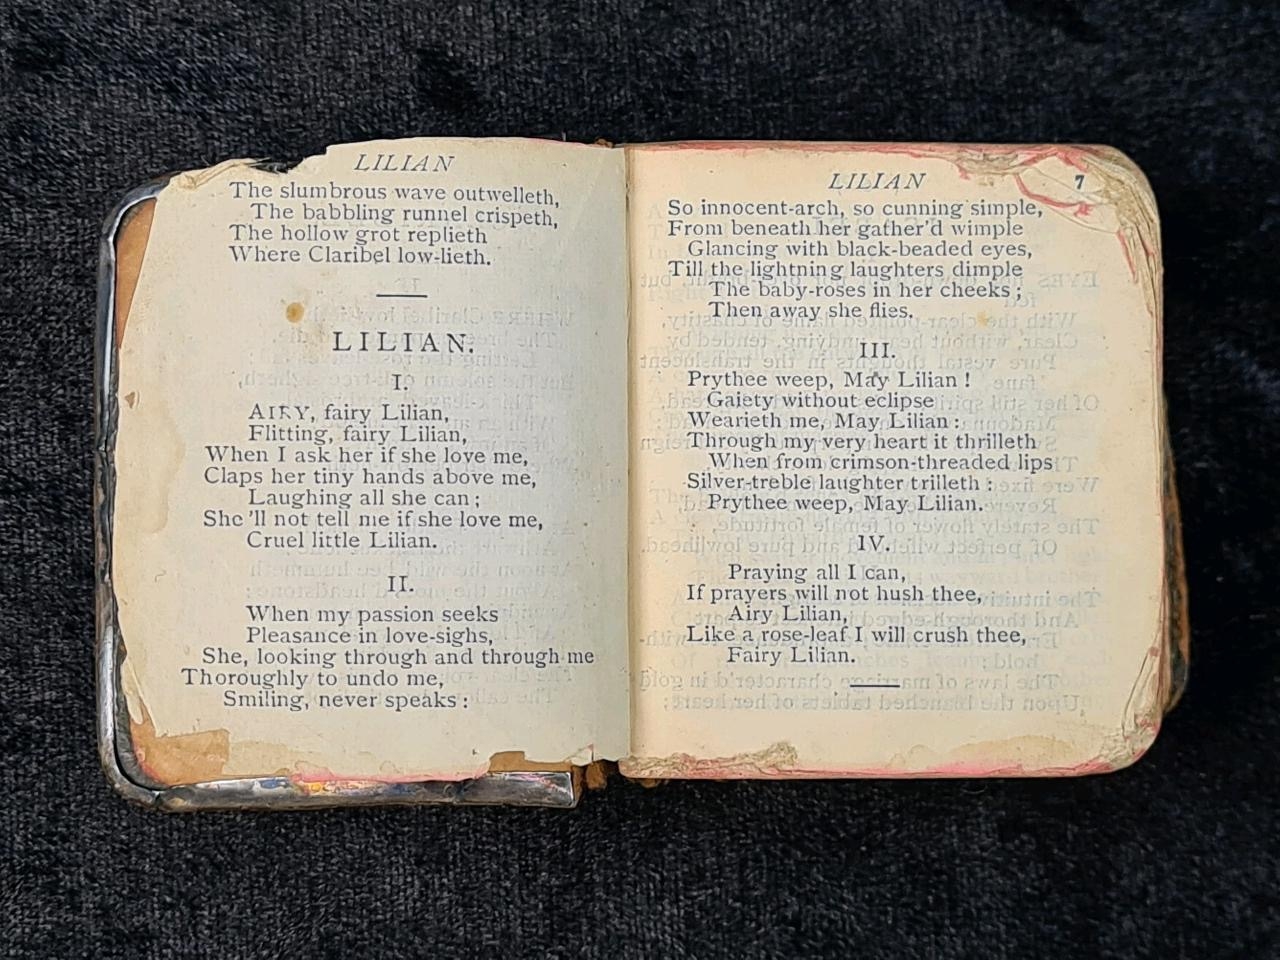 LILIAN
The slumbrous wave outwelleth,
The babbling runnel crispeth,
The hollow grot replieth
Where Claribel low-lieth.
LILIAN.
I.
AIRY, fairy Lilian,
Flitting, fairy Lilian,
When I ask her if she love me,
Claps her tiny hands above me,
Laughing all she can;
She 'll not tell me if she love me,
Cruel little Lilian.
II.
When my passion seeks
Pleasance in love-sighs,
She, looking through and through me
Thoroughly to undo me,
Smiling, never speaks:
LILIAN 7
So innocent-arch, so cunning simple,
From beneath her gather'd wimple
Glancing with black-beaded eyes,
Till the lightning laughters dimple
The baby-roses in her cheeks;
Then away she flies.
III.
Prythee weep, May Lilian!
Gaiety without eclipse
Wearieth me, May Lilian:
Through my very heart it thrilleth
When from crimson-threaded lips
Silver-treble laughter trilleth:
Prythee weep, May Lilian.
IV.
Praying all I can,
If prayers will not hush thee,
Airy Lilian,
Like a rose-leaf I will crush thee,
Fairy Lilian.